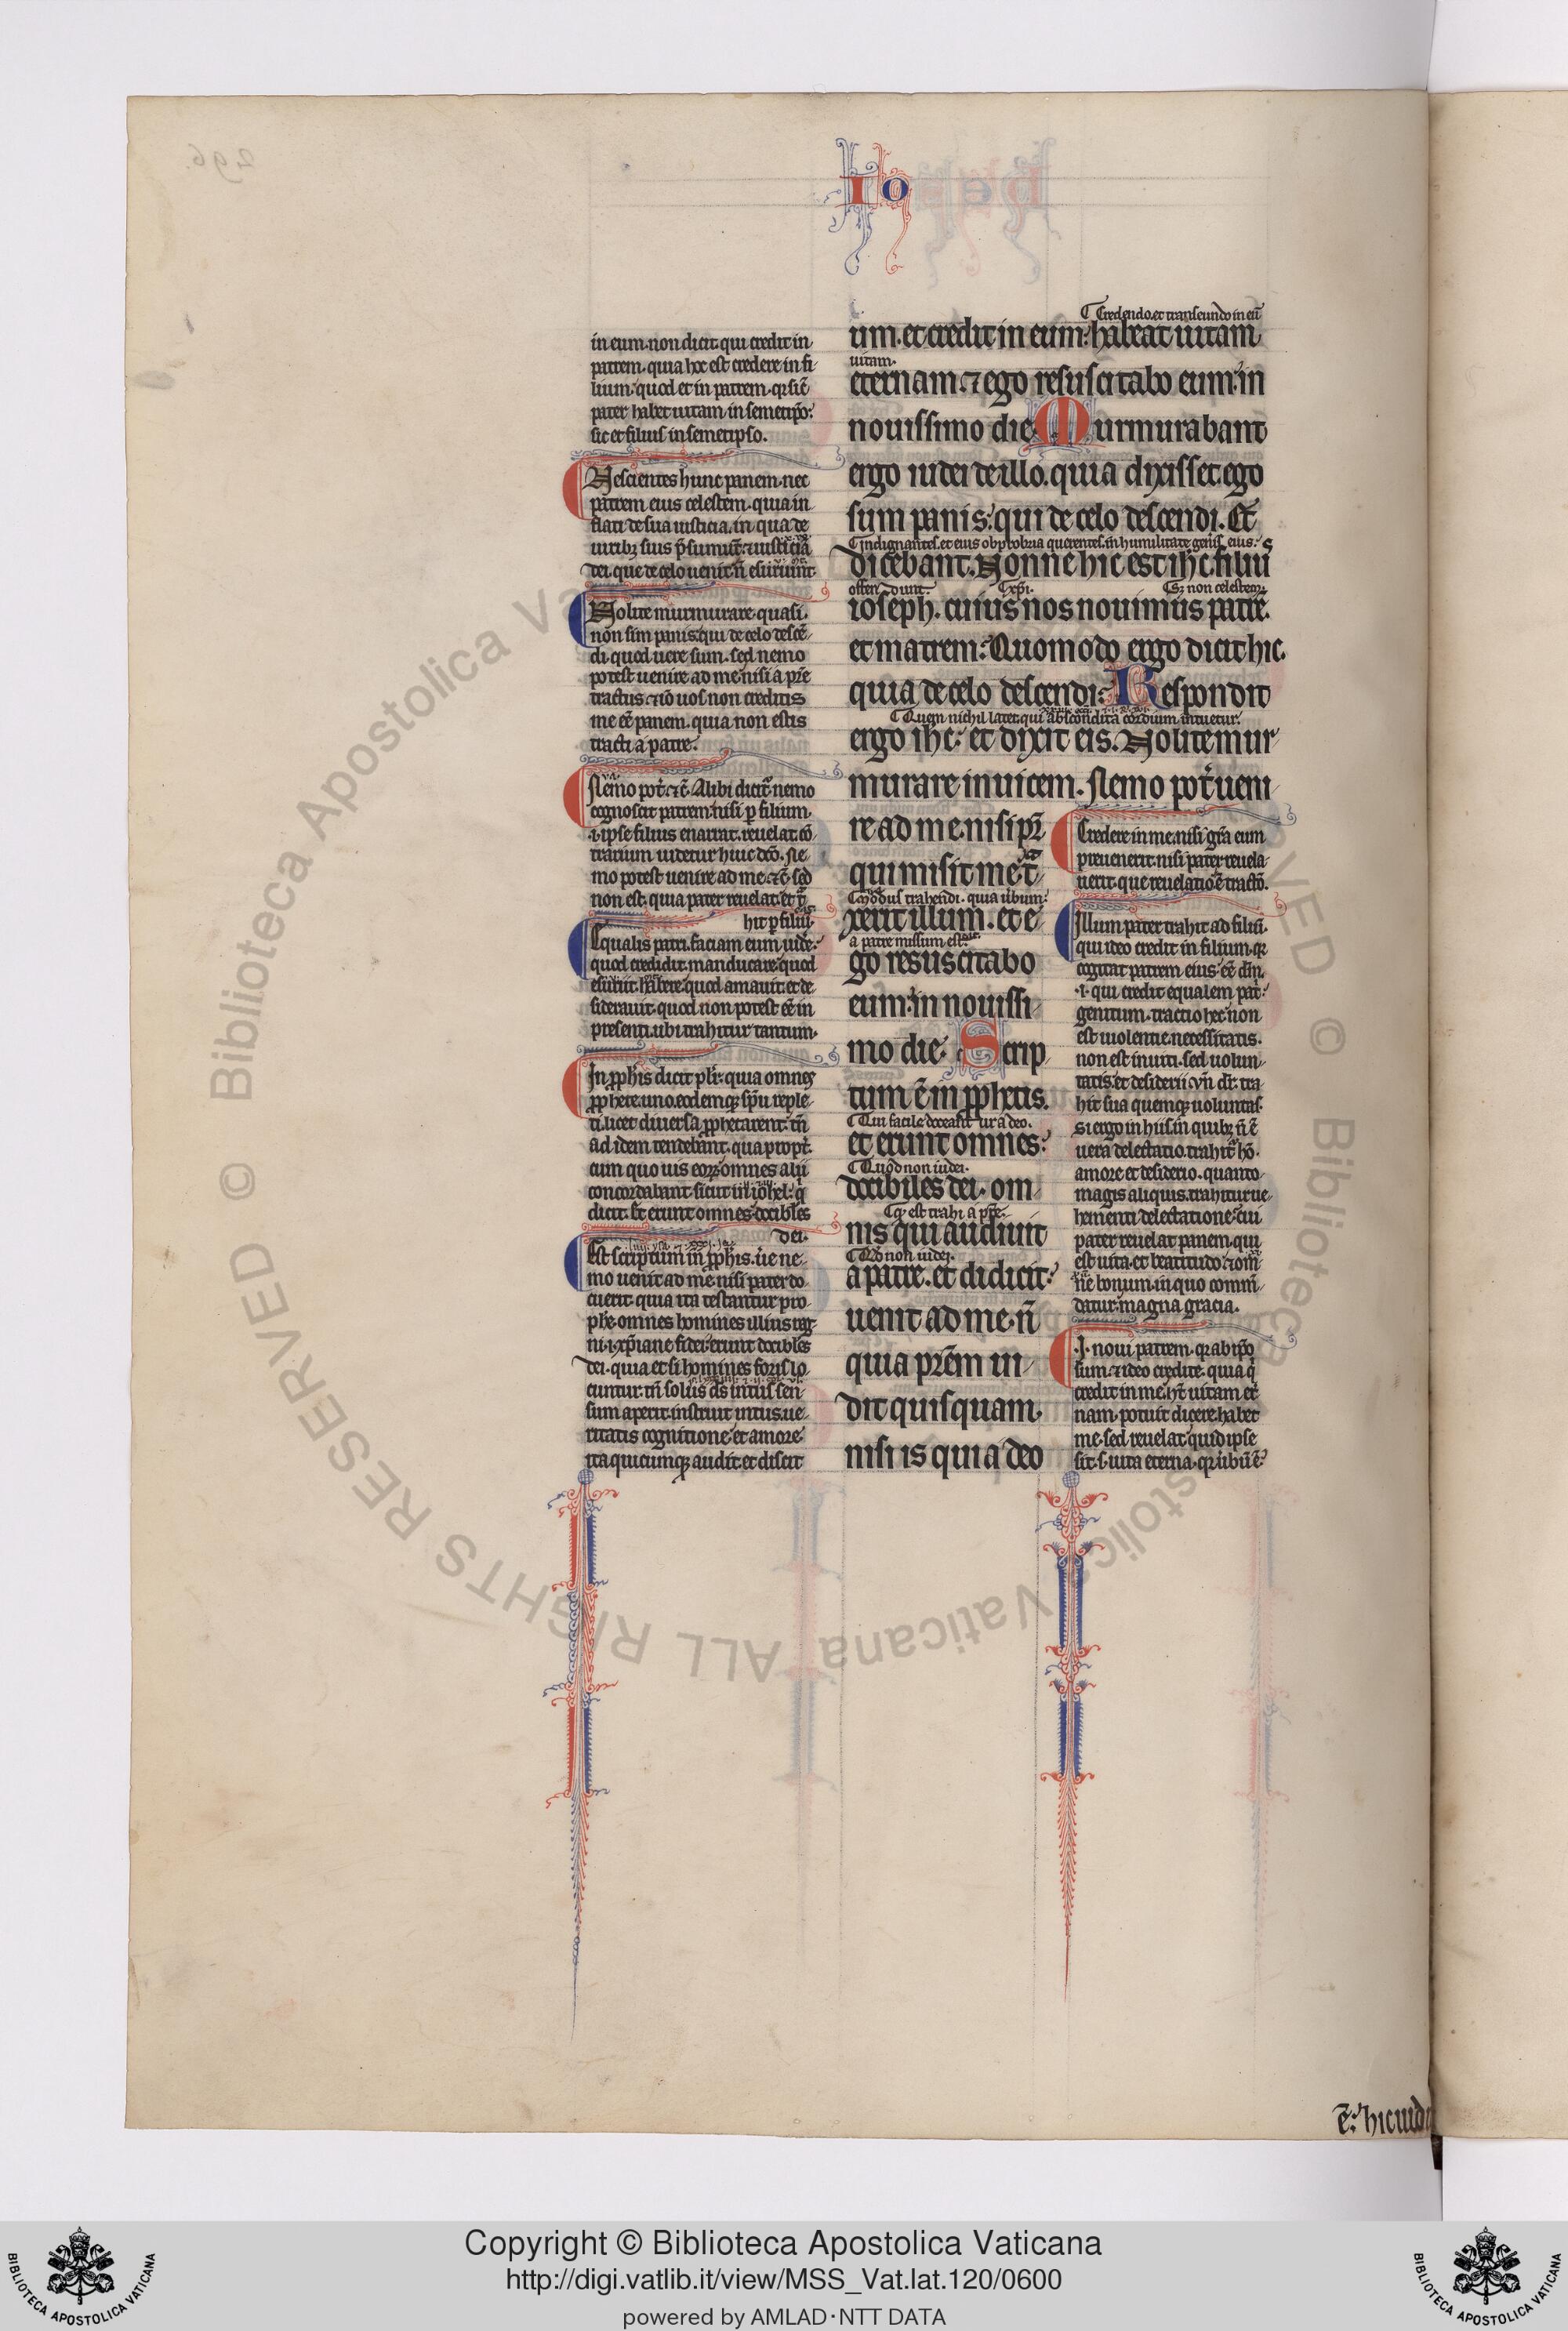 Io
in eum. non dicit qui credit in
patrem. quia hoc est credere in fi-
lium. quod et in patrem. qr sic̄
pater habet uitam in semetip̄o:
sic et filius in semetipso.
Nescientes hunc panem. nec
patrem eius celestem. quia in
flati de sua iusticia. in qua de
dei. que de celo uenit. n̄ esuriunt.
Nolite murmurare. quasi
non sim panis qui de celo desce̅-
di. quod uere sum. sed nemo
potest uenire ad me. nisi a pr̄e
tractus. ⁊ iō uos non creditis
me eē panem. quia non estis
tracti a patre.
Nemo pot̄. ⁊c̄. Alibi dicit̄. nemo
cognoscit patrem. nisi p̄ filium.
.i. ipse filius enarrat. reuelat. cō
trarium uidetur huic deō. Ne-
mo potest uenire ad me. ⁊c̄. sed
non est. quia pater reuelat. et t̄
hit p̄ filiū.
Equalis patri. faciam eum uide-
quod credidit. manducare quod
esuriit. habere quod amauit. et de-
siderauit. quod non potest eē in
presenti. ubi trahitur tantum.
In p̄phis dicit pl̄r. quia omnes
p̄phete. uno. eodemq; sp̄u reple-
ti. licet diuersa p̄phetarent. tn̄
ad idem tendebant. qua propt̄.
cum quo uis eorꝫ omnes alij
concordabant. sicut in iohel. q̄
dicit. Et erunt omnes docibles
dei.
Est scriptum in p̄phis. ūe ne-
mo uenit ad me nisi pater do-
cuerit. quia ita testantur pro-
ph̄e. omnes homines illius reg-
ni. .i. xp̄iane fidei. erunt docibles
dei. quia et si homines foris lo-
cuntur. tn̄ solus ds̄ intus sen-
sum aperit. instruit intus. ue-
ritatis cognitione. et amore.
ita quicumq; audit. et discit
Credendo. et transeundo in eū
um. et credit in eum: habeat uitam
uitam.
eternam. ⁊ ego resuscitabo eum in
nouissimo die. Murmurabant
ergo iudei de illo. quia dixisset. ego
sum panis: qui de celo descendi. Et
Indignantes. et eius obprobria querentes. in humilitate gen̄is eius.
dicebant. Nonne hic est ih̄c. filiū
ostendunt. xp̄i. Sꝫ non celestem.
ioseph. cuius nos nouimus patrē.
et matrem: Quomodo ergo dicit hic.
quia de celo descendi: Respondit
Quem nichil latet. qui abscondita cordium intuetur.
ergo ih̄c: et dixit eis. Nolite mur
murare inuicem. Nemo pot̄ ueni
re ad me. nisi pr̄
qui misit me. t̄
Modus trahendi. quia ūbum
xerit illum. et e
a patre missum est.
go resuscitabo
eum: in nouissi
mo die. Scrip
tum ē in p̄phetis.
Qui facile docean̄tur a deo.
et erunt omnes:
Quod non iudei.
docibiles dei. om
Qꝫ est trahi a pr̄e.
nis qui audiuit
Qd̄ non iudei.
a patre. et didicit:
uenit ad me. n̄
quia pr̄em ui-
dit quisquam.
nisi is qui a deo
Credere in me. nisi gr̄a eum
preuenerit. nisi pater reuela-
uerit. que reuelatio ē tractō.
Illum pater trahit ad filiū.
qui ideo credit in filium. qr
cogitat patrem eius eē dm̄.
.i. qui credit equalem pat̄:
genitum. tractio hec non
est uiolentie. necessitatis.
non est inuiti. sed uolun-
tatis. et desiderii. vn̄ dr̄. tra-
hit sua quemq; uoluntas.
si ergo in hiis in quibꝫ n̄ ē
uera delectatio. trahit̄ hō.
amore et desiderio. quanto
magis aliquis. trahitur ue-
hementi delectatione. cui
pater reuelat panem. qui
est uita. et beatitudo. ⁊ om̄
ne bonum. in quo comm̄-
datur magna gracia.
.I. noui patrem. qr ab ip̄o
sum. ⁊ ideo credite. quia q̄
credit in me. h̄t uitam et̄
nam. potuit dicere. habet
me. sed reuelat quid ipse
sit. s. uita eterna. qr ūbū ē
ē. hic uid
Copyright © Biblioteca Apostolica Vaticana
http://digi.vatlib.it/view/MSS_Vat.lat.120/0600
powered by AMLAD·NTT DATA
BIBLIOTECA APOSTOLICA VATICANA
BIBLIOTECA APOSTOLICA VATICANA
© Biblioteca Apostolica Vaticana ALL RIGHTS RESERVED